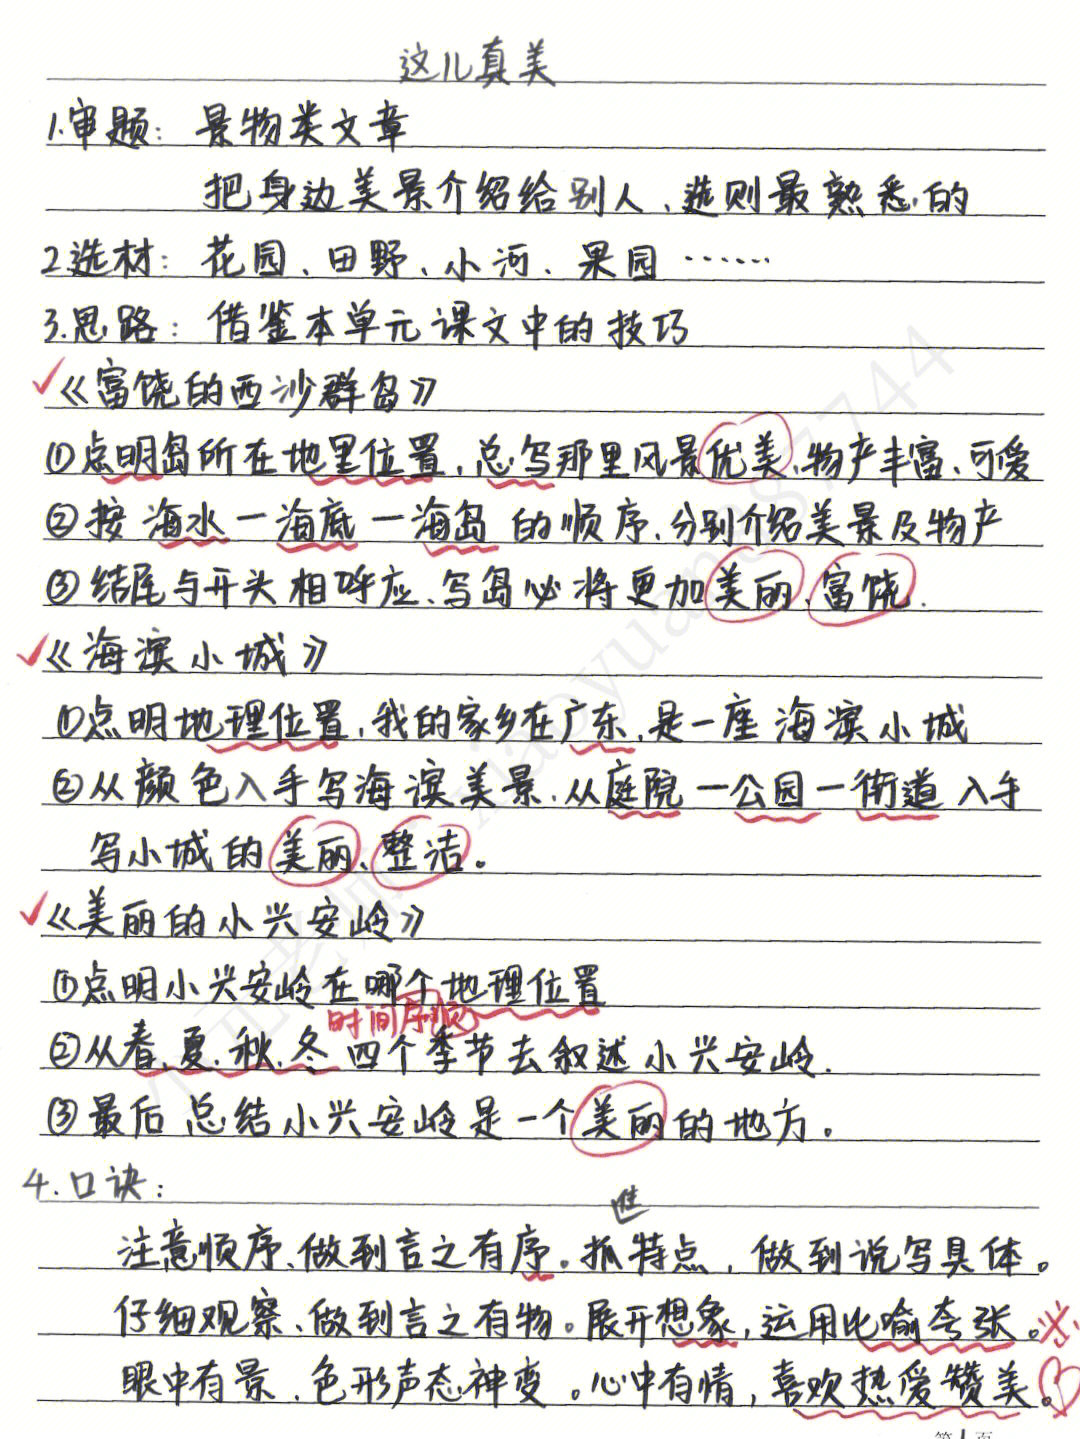 这儿真美
1.审题：景物类文章
把身边美景介绍给别人、选则最熟悉的
2.选材：花园、田野、小河、果园……
3.思路：借鉴本单元课文中的技巧
《富饶的西沙群岛》
①点明岛所在地里位置，总写那里风景优美、物产丰富、可爱
②按海水一海底一海岛的顺序、分别介绍美景及物产
③结尾与开头相呼应、写岛必将更加美丽、富饶.
《海滨小城》
①点明地理位置，我的家乡在广东，是一座海滨小城
②从颜色入手写海滨美景.从庭院一公园一街道入手
写小城的美丽、整洁。
《美丽的小兴安岭》
①点明小兴安岭在哪个地理位置
时间序顺
②从春、夏、秋、冬四个季节去叙述小兴安岭.
③最后总结小兴安岭是一个美丽的地方。
4.口诀：
注意顺序、做到言之有序。抓住特点，做到说写具体。
仔细观察、做到言之有物。展开想象，运用比喻夸张。
眼中有景、色形声态神变。心中有情，喜欢热爱赞美。
小元老师 xiaoyuan88744